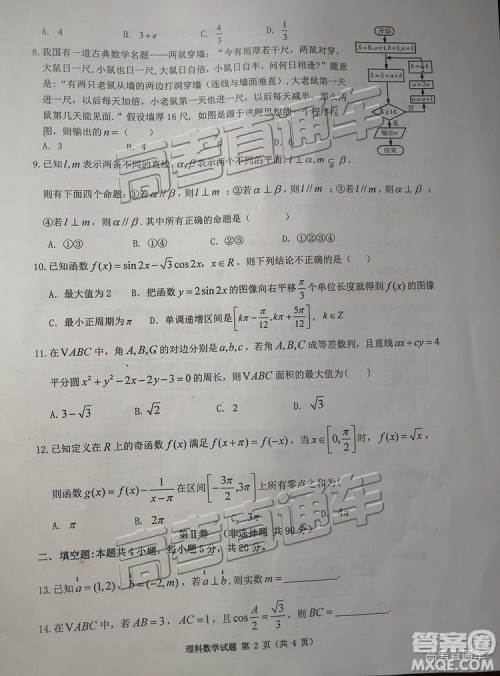 A. 4 B. 3+e C. 4/3 D. 1/3
8. 我国有一道古典数学名题——两鼠穿墙："今有垣厚若干尺，两鼠对穿，
大鼠日一尺，小鼠日也一尺，大鼠日自倍，小鼠日自半，问何日相逢？"题意
是："有两只老鼠从墙的两边打洞穿墙（连线与墙面垂直），大老鼠第一天进
一尺，以后每天加倍，小老鼠第一天也进一尺，以后每天减半，那么两
鼠第几天能见面."假设墙厚16尺，如图是源于该题思想的一个程序框
图，则输出的 n=（ ）
A. 3 B. 4
开始
S=0,a=1,b=1,n=1
S=S+a+b
S≥16
是
否
输出n
结束
n=n+1
a=2a
9. 已知 l,m 表示两条不同的直线，α,β 表示两个不同的平面，l⊥α,m⊂β，
则有下面四个命题：①若 α∥β，则 l⊥m；②若 α⊥β，则 l∥m；③若 l∥m，则 α⊥β；
④若 l⊥m，则 α∥β. 其中所有正确的命题是（ ）
A. ①③ B. ①④ C. ②③ D. ①②③④
10. 已知函数 f(x)=sin2x-√3cos2x，x∈R，则下列结论不正确的是（ ）
A. 最大值为 2 B. 把函数 y=2sin2x 的图像向右平移 π/3 个单位长度就得到 f(x) 的图像
C. 最小正周期为 π D. 单调递增区间是 [kπ-π/12,kπ+5π/12],k∈Z
11. 在VABC中，角 A,B,G 的对边分别是 a,b,c，若角 A,B,C 成等差数列，且直线 ax+cy=4
平分圆 x²+y²-2x-2y-3=0 的周长，则VABC面积的最大值为（ ）
A. 3-√3 B. √2 C. 2 D. √3
12. 已知定义在 R 上的奇函数 f(x) 满足 f(x+π)=f(-x)，当 x∈[0,π/2] 时，f(x)=√x，
则函数 g(x)=f(x)-1/(x-π) 在区间 [-3π/2,3π] 上所有零点之和为（ ）
A. π B. 2π D. 4π
第Ⅱ卷 （非选择题 共 90 分）
二、填空题：本题共 4 小题，每小题 5 分，共 20 分。
13. 已知 a=(1,2)，b=(-2,m)，若 a⊥b，则实数 m=
14. 在VABC中，若 AB=3，AC=1，且 cos A/2=√3/3，则 BC=
理科数学试题 第 2 页（共 4 页）
高考直通车
高考直通车
高考直通车
作业帮
答案圈
MXQE.COM